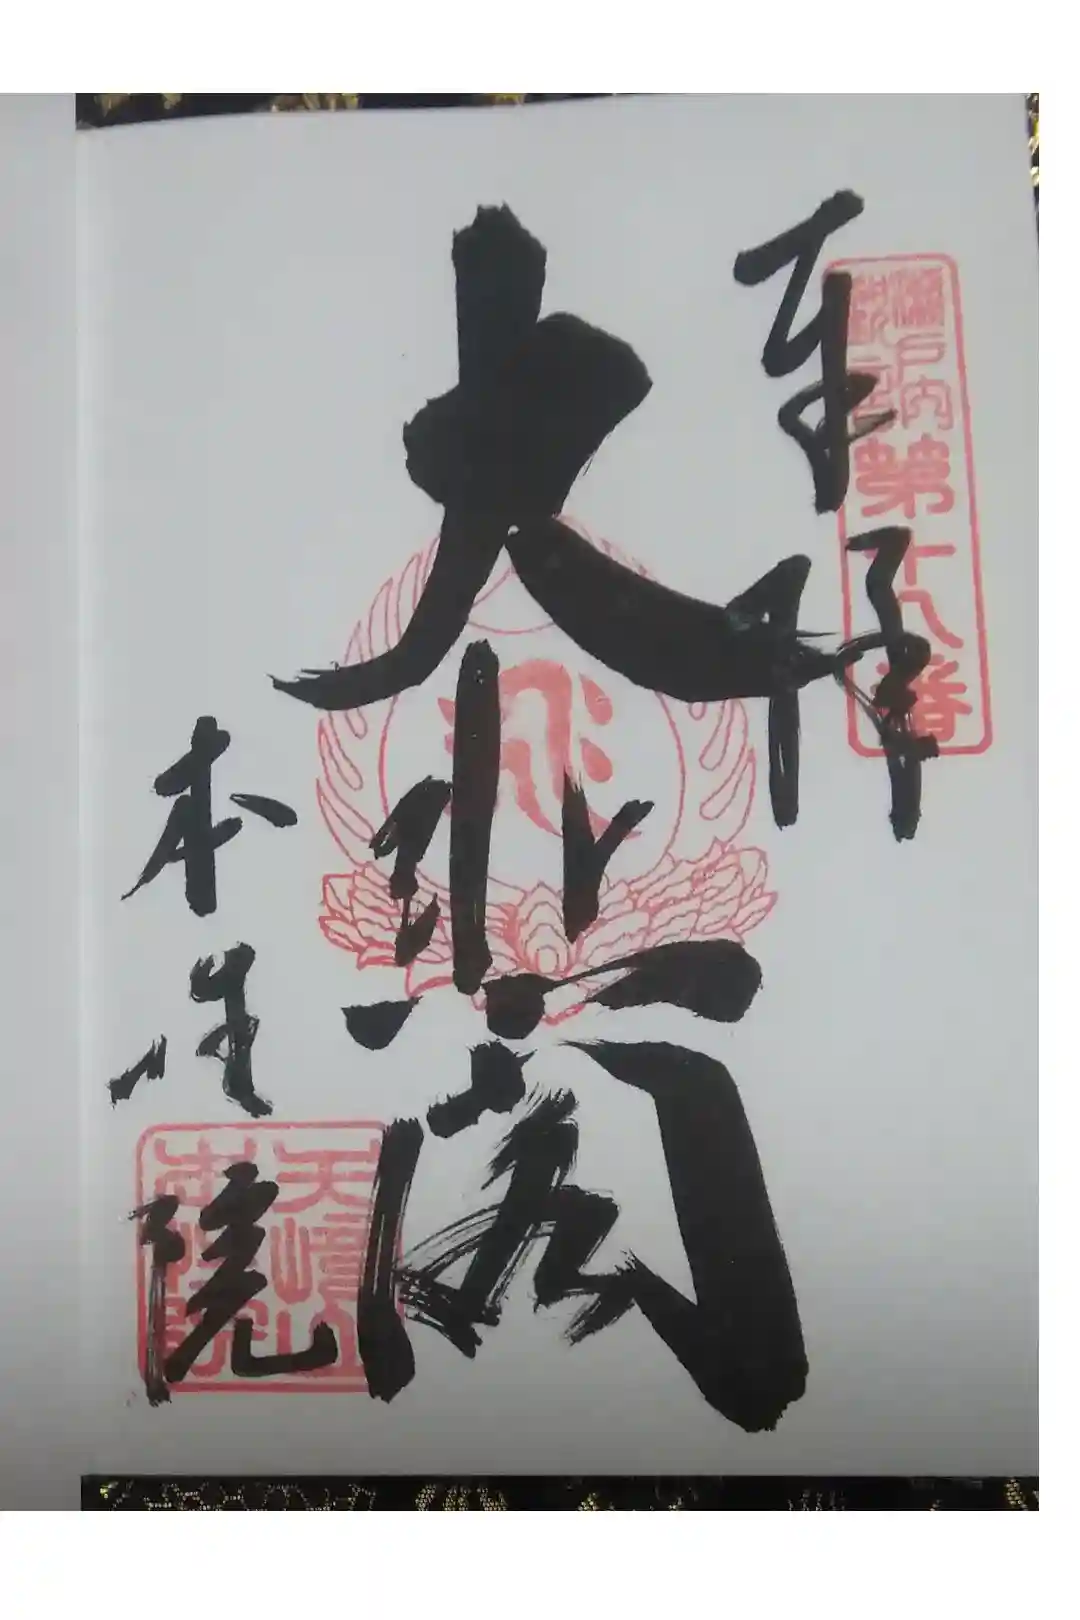 奉拝
瀬戸内
観音
第十八番
大悲閣
本性院
天崎山
本性院